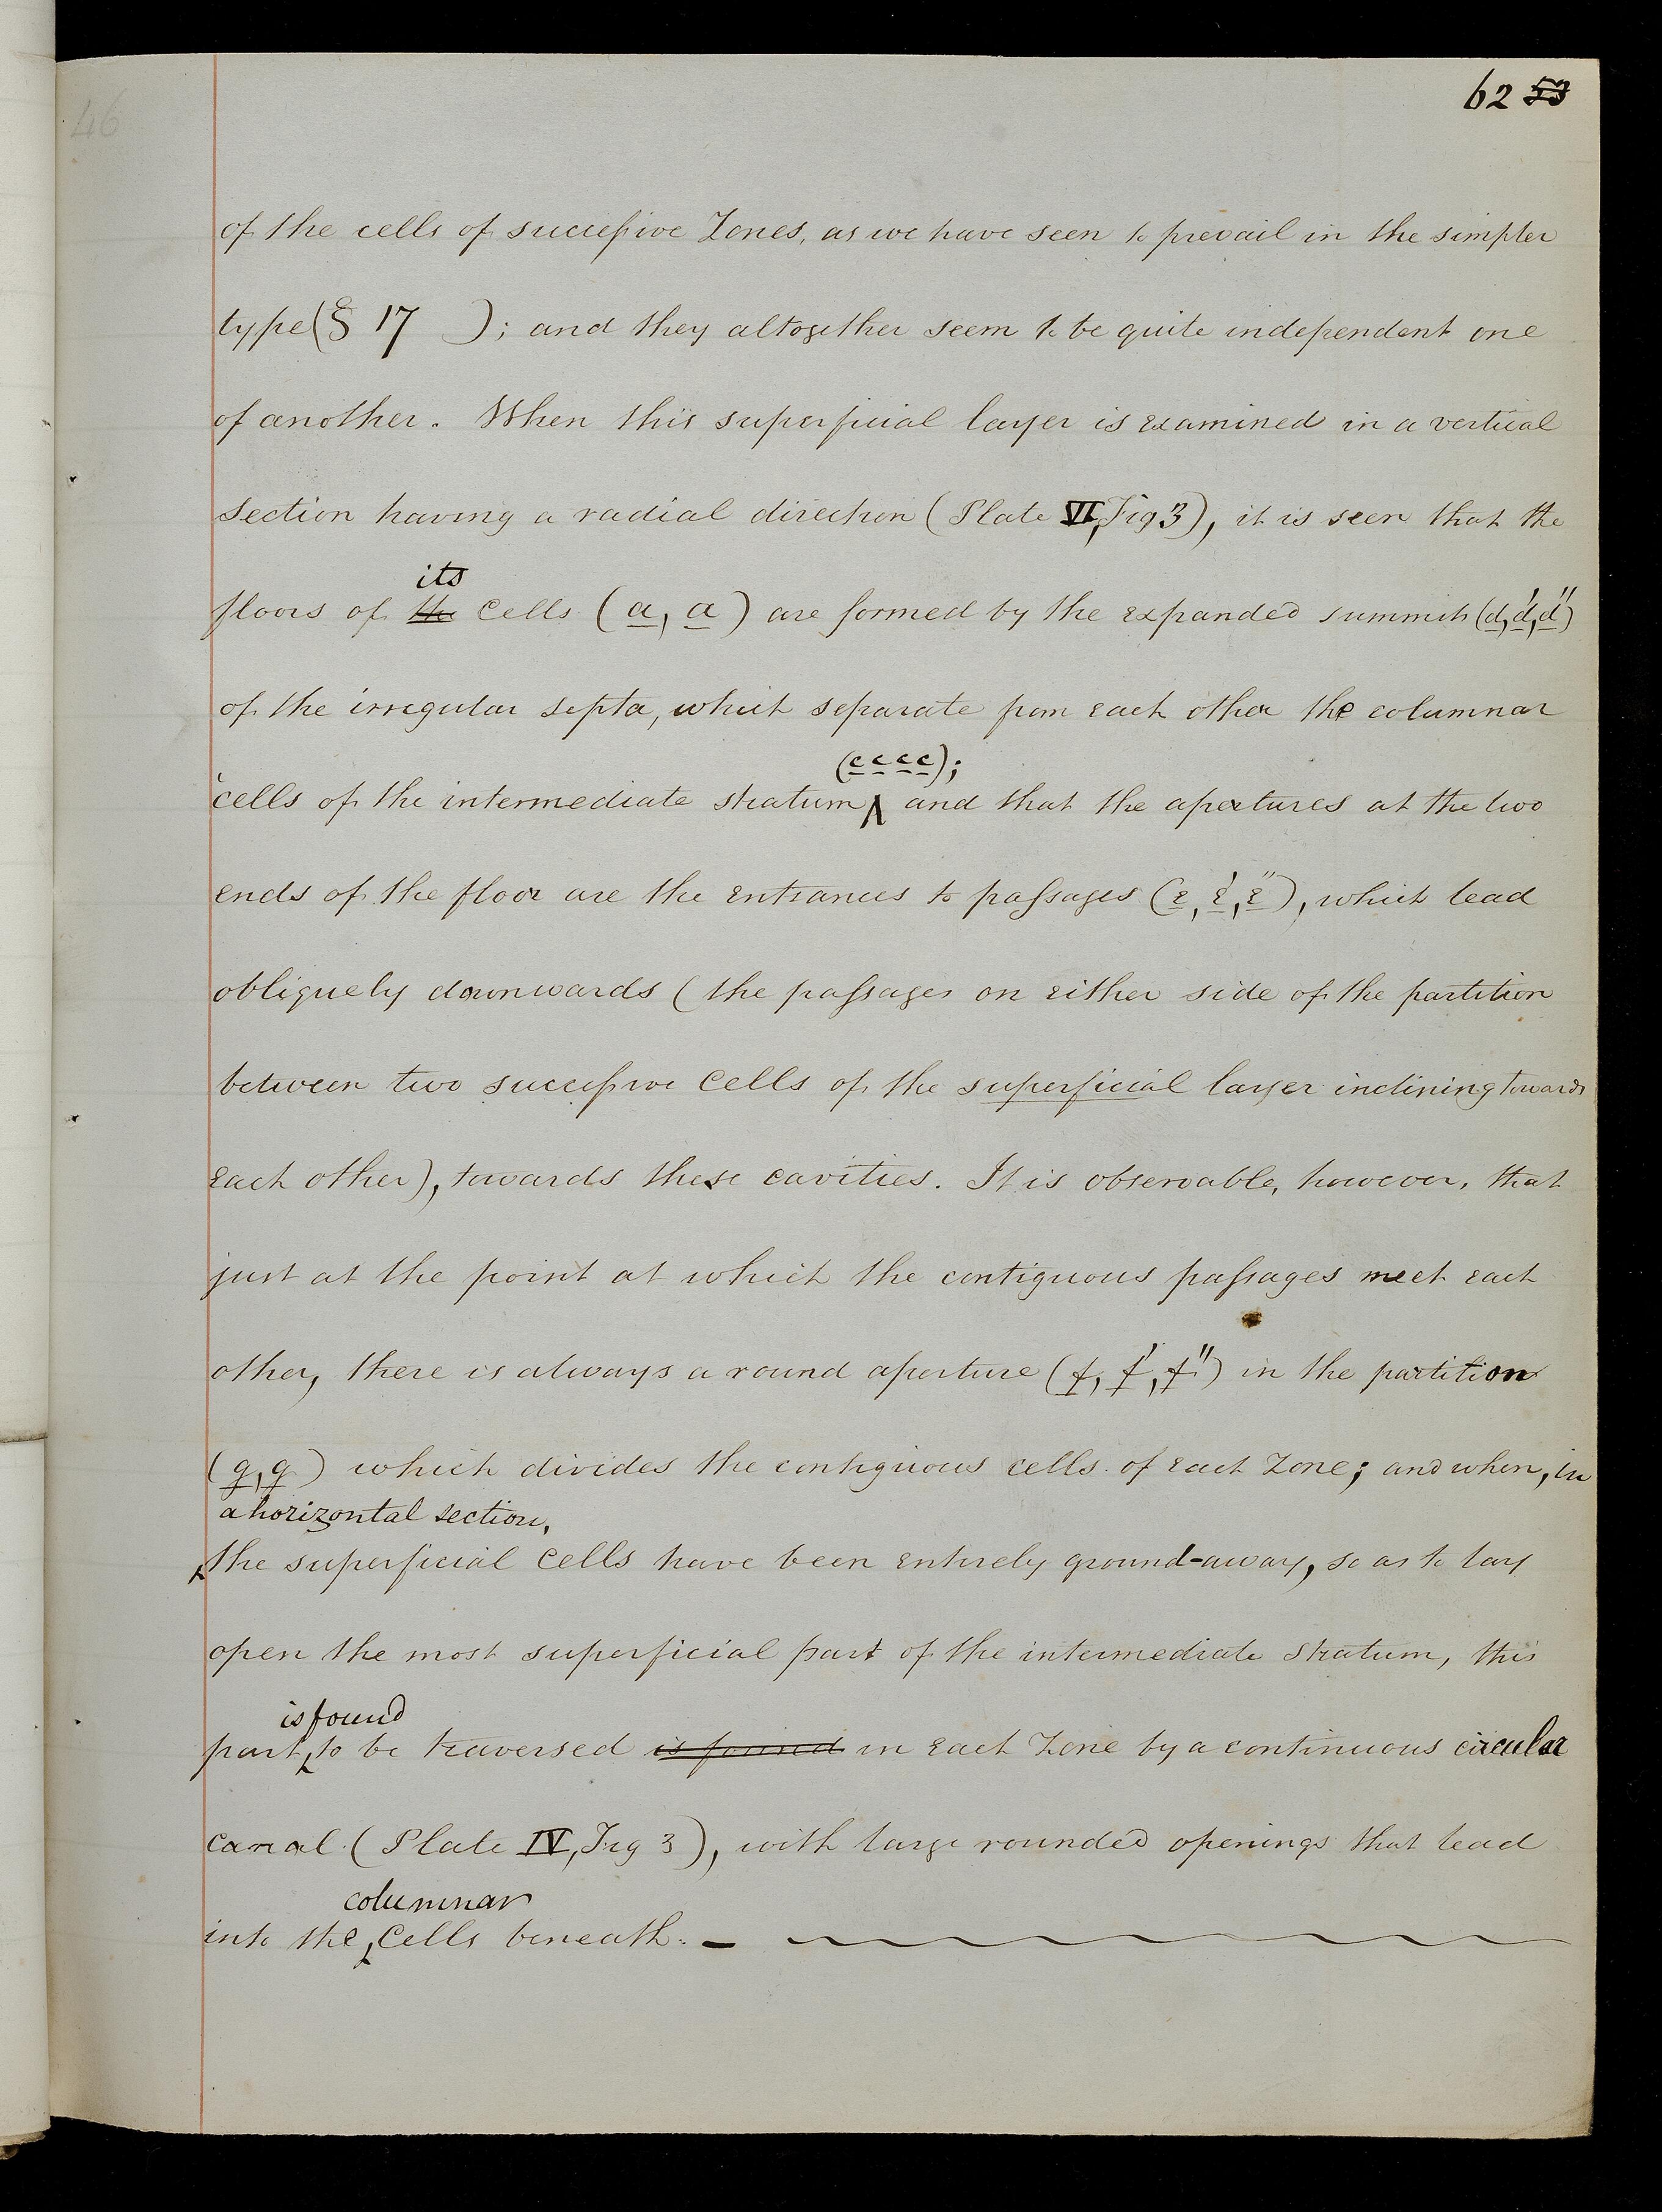 46
62 53
of the cells of successive Zones, as we have seen to prevail in the simpler
type (§ 17 ); and they altogether seem to be quite independent one
of another. When this superficial layer is examined in a vertical
section having a radial direction (Plate VI, Fig 3), it is seen that the
its
floors of the cells (a, a) are formed by the expanded summits (d, d', d'')
of the irregular septa, which separate from each other the columnar
(c c c c);
cells of the intermediate stratum and that the apertures at the two
ends of the floor are the entrances to passages (e, e', e''), which lead
obliquely downwards (the passages on either side of the partition
between two successive cells of the superficial layer inclining towards
each other), towards these cavities. It is observable, however, that
just at the point at which the contiguous passages meet each
other, there is always a round aperture (f, f', f'') in the partition
(g, g) which divides the contiguous cells of each Zone; and when, in
a horizontal section,
the superficial cells have been entirely ground-away, so as to lay
open the most superficial part of the intermediate stratum, this
is found
part to be traversed is found in each Zone by a continuous circular
canal (Plate IV, Fig 3), with large rounded openings that lead
columnar
into the Cells beneath. —